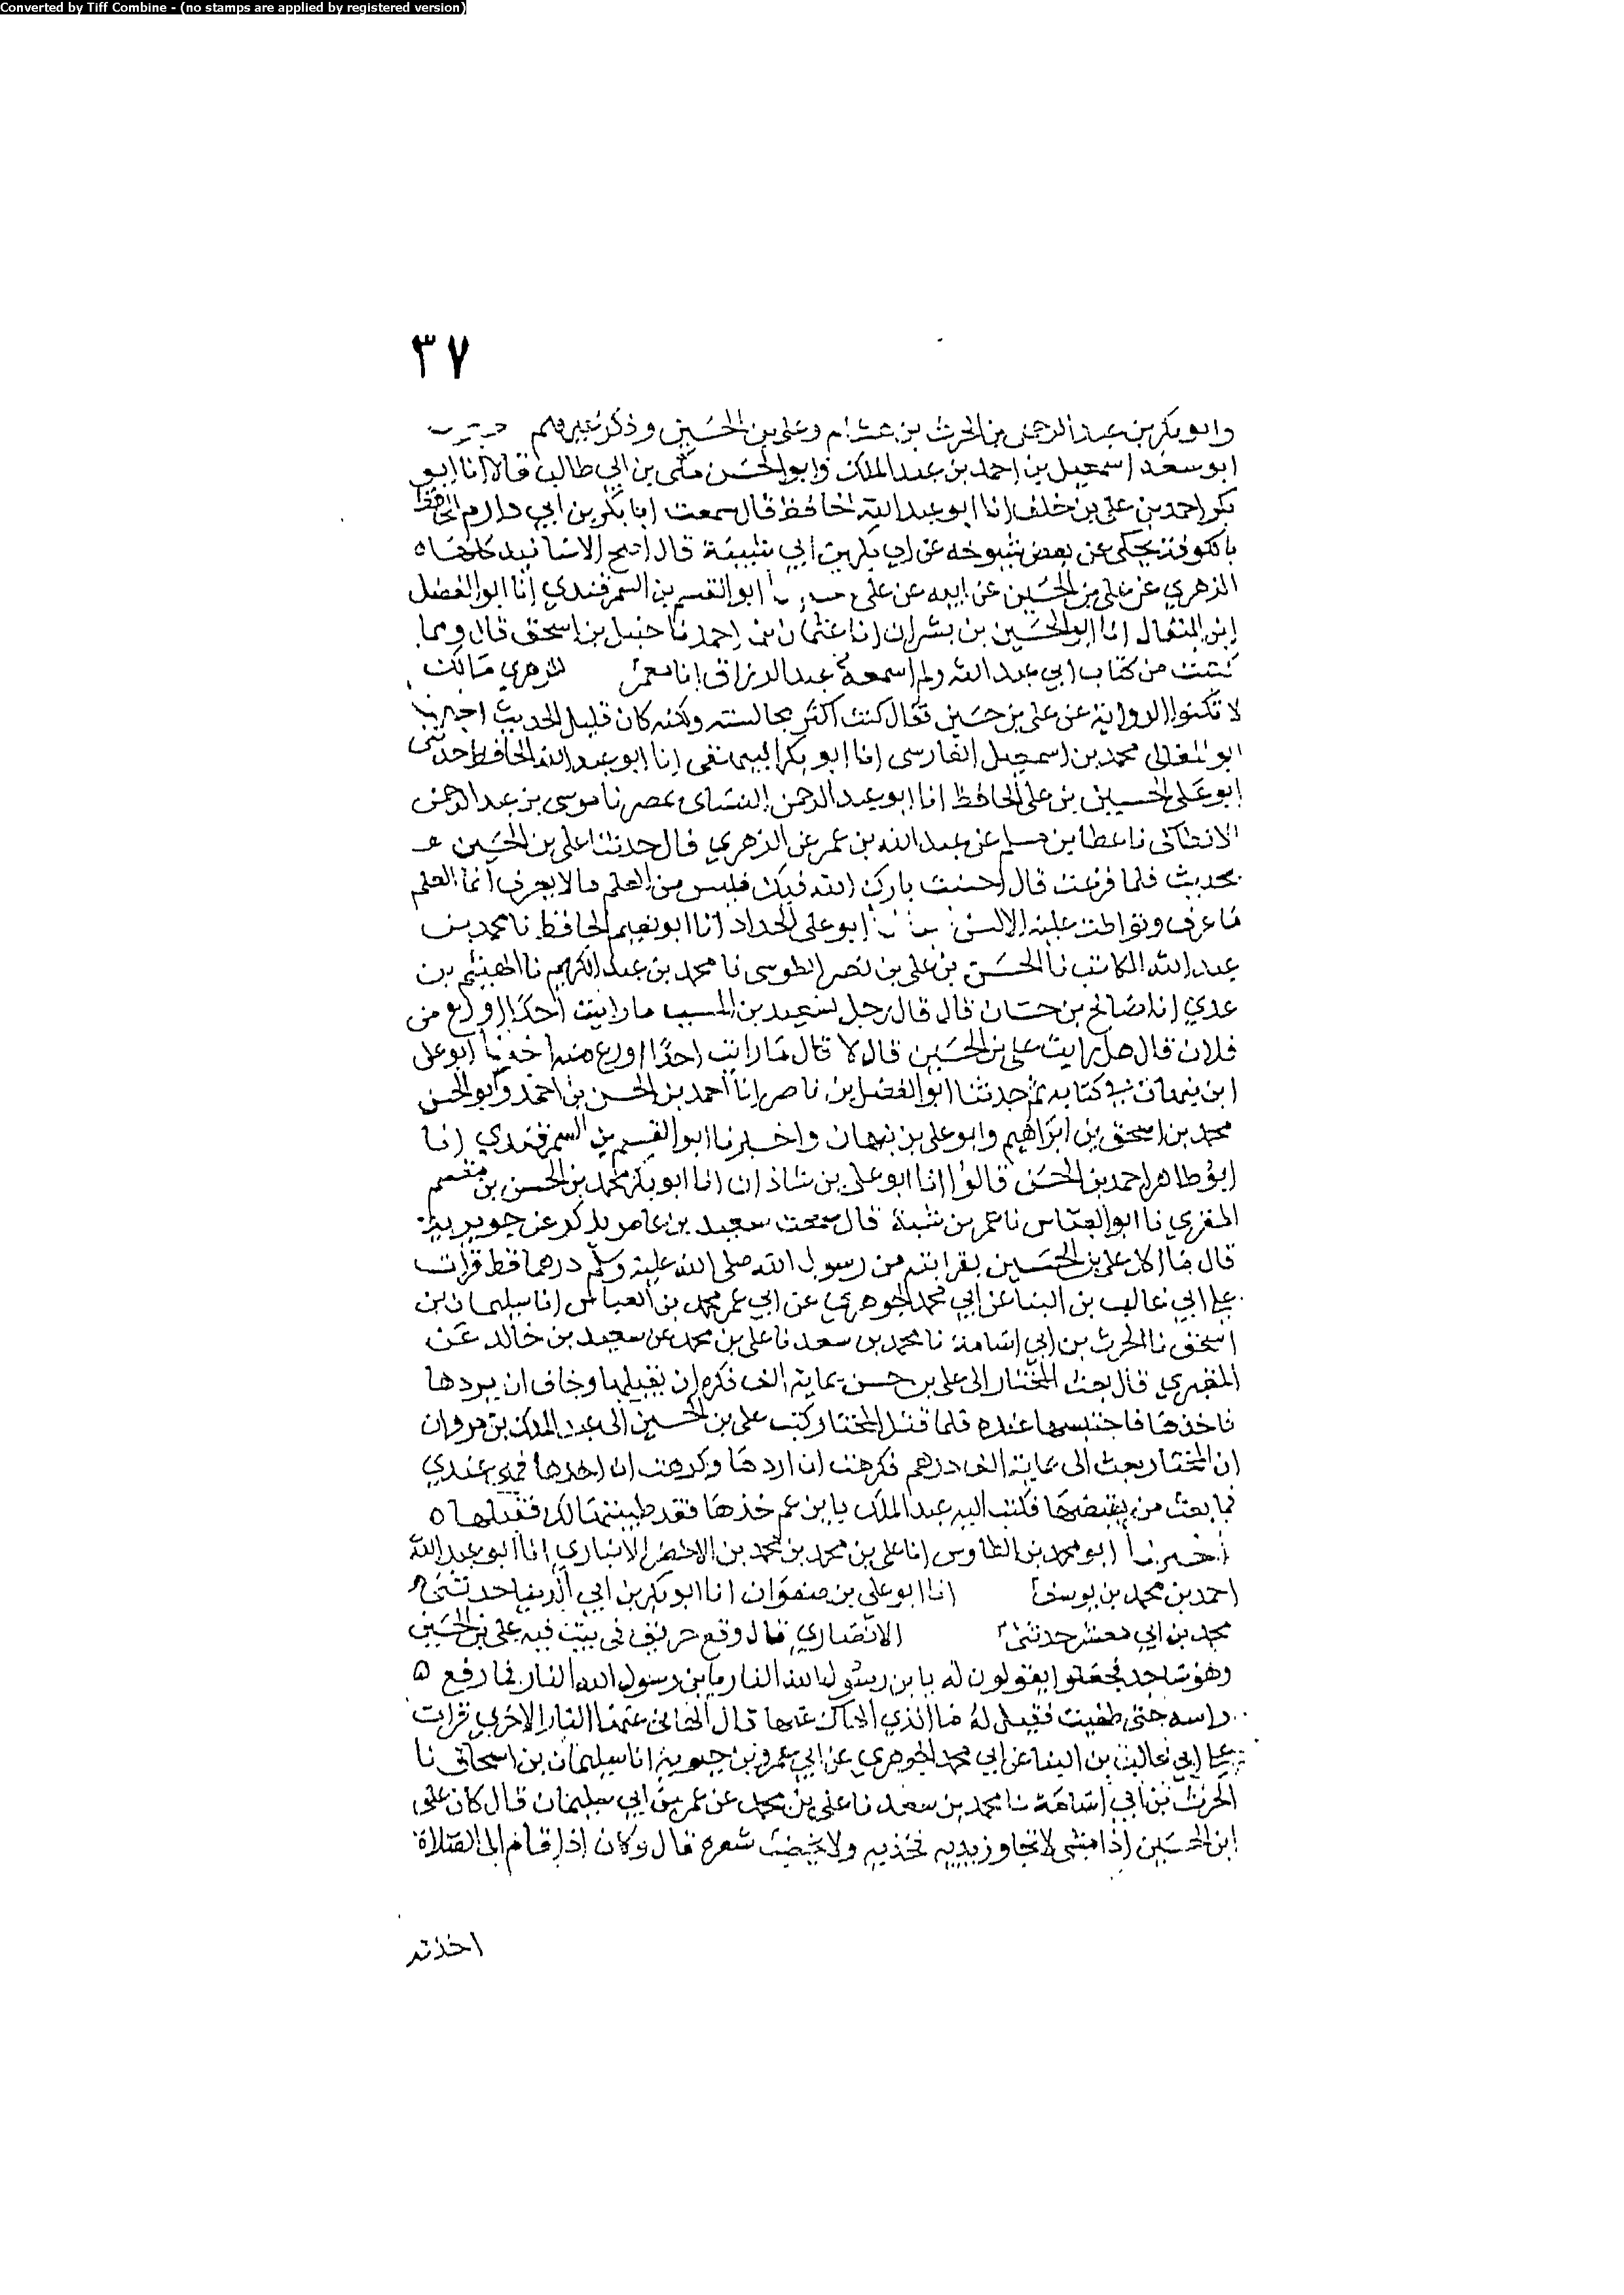 Converted by Tiff Combine - (no stamps are applied by registered version)
٣٧
وابو بكر بن عبد الرحمن بن الحرث بن هشام وعلي بن الحسين وذكر غيرهم
ابو سعد اسمعيل بن احمد بن عبد الملك وابو الحسن مكي بن ابي طالب قالا انا ابو
بكر احمد بن علي بن خلف انا ابو عبد الله الحافظ قال سمعت ابا بكر بن ابي دارم الحافظ
بالكوفة يحكي عن بعض شيوخه عن ابي بكر بن ابي شيبة قال اصح الاسانيد كلها ه
الزهري عن علي بن الحسين عن ابيه عن علي ابو القسم بن السمرقندي انا ابو الفضل
ابن البقال انا ابو الحسين بن بشران انا عثمان بن احمد نا حنبل بن اسحق قال ومما
كتبت من كتاب ابي عبد الله ولم اسمعه عبد الرزاق انا معمر للزهري مالك
لا تكثر الرواية عن علي بن حسين فقال كنت اكثر مجالسته ولكنه كان قليل الحديث اخبرنا
ابو المعالي محمد بن اسمعيل الفارسي انا ابو بكر البيهقي انا ابو عبد الله الحافظ حدثني
ابو علي الحسين بن علي الحافظ انا ابو عبد الرحمن النسائي بمصر نا موسى بن عبد الرحمن
الانطاكي نا عطا بن مسلم عن عبد الله بن عمر عن الزهري قال حدثنا علي بن الحسين
بحديث فلما فرغت قال احسنت بارك الله فيك فليس من العلم ما لا يعرف انما العلم
ما عرف وتواطت عليه الالسن ابو علي الحداد انا ابو نعيم الحافظ نا محمد بن
عبد الله الكاتب نا الحسن بن علي بن نصر الطوسي نا محمد بن عبد الكريم نا الهيثم بن
عدي انا صالح بن حسان قال قال رجل لسعيد بن المسيب ما رايت احدا اورع من
فلان قال هل رايت علي بن الحسين قال لا قال ما رايت احدا اورع منه اخبرنا ابو علي
ابن نبهان في كتابه ثم حدثنا ابو الفضل بن ناصر انا احمد بن الحسن بن احمد وابو الحسن
محمد بن اسحق بن ابراهيم وابو علي بن نبهان واخبرنا ابو القسم بن السمرقندي انا
ابو طاهر احمد بن الحسن قالوا انا ابو علي بن شاذان انا ابو بكر محمد بن الحسن بن مقسم
المقري نا ابو العباس نا عمر بن شبة قال سمعت سعيد بن عامر يذكر عن جويرية
قال ما اكل علي بن الحسين بقرابته من رسول الله صلى الله عليه وسلم درهما قط قرات
علي ابي غالب بن البنا عن ابي محمد الجوهري عن ابي عمر محمد بن العباس انا سليمان بن
اسحق نا الحرث بن ابي اسامة نا محمد بن سعد نا علي بن محمد عن سعيد بن خالد عن
المقبري قال بعث المختار الى علي بن حسين بماية الف فكره ان يقبلها وخاف ان يردها
فاخذها فاحتبسها عنده فلما قتل المختار كتب علي بن الحسين الى عبد الملك بن مروان
ان المختار بعث الى بماية الف درهم فكرهت ان اردها وكرهت ان اخذها فهي عندي
فابعث من يقبضها فكتب اليه عبد الملك يا بن عم خذها فقد طيبتها لك فقبلها ه
اخبرنا ابو محمد بن الطاوس انا علي بن محمد بن محمد بن الاخضر الانباري انا ابو عبد الله
احمد بن محمد بن يوسف انا ابو علي بن صفوان انا ابو بكر بن ابي الدنيا حدثني
محمد بن ابي معشر حدثني الانصاري قال وقع حريق في بيت فيه علي بن الحسين
وهو ساجد فجعلوا يقولون له يا بن رسول الله النار يا بن رسول الله النار فما رفع
راسه حتى طفيت فقيل له ما الذي الهاك عنها قال الهاني عنها النار الاخرى قرات
علي ابي غالب بن البنا عن ابي محمد الجوهري عن ابي عمرو بن حيوية انا سليمان بن اسحاق نا
الحرث بن ابي اسامة نا محمد بن سعد نا علي بن محمد عن عمر بن ابي سليمان قال كان علي
ابن الحسين اذا مشى لا تجاوز يديه فخذيه ولا يخضب شعره قال وكان اذا قام الى الصلاة
اخذته